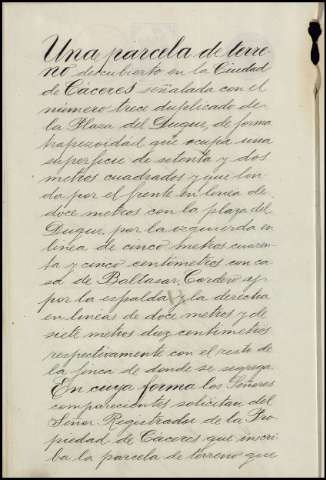 Una parcela de terre-
no descubierto en la Ciudad
de Cáceres señalada con el
número trece duplicado de
la Plaza del Duque, de forma
trapezoidal que ocupa una
superficie de setenta y dos
metros cuadrados y que lin-
da por el frente en linea de
doce metros con la plaza del
Duque, por la izquierda en
linea de cinco metros cuaren-
ta y cinco centimetros con ca-
sa de Baltasar Cordero y
por la espalda y la derecha
en lineas de doce metros y de
siete metros diez centimetros
respectivamente con el resto de
la finca de donde se segrega.
En cuya forma los Señores
comparecientes solicitan del
Señor Registrador de la Pro-
piedad de Cáceres que inscri-
ba la parcela de terreno que